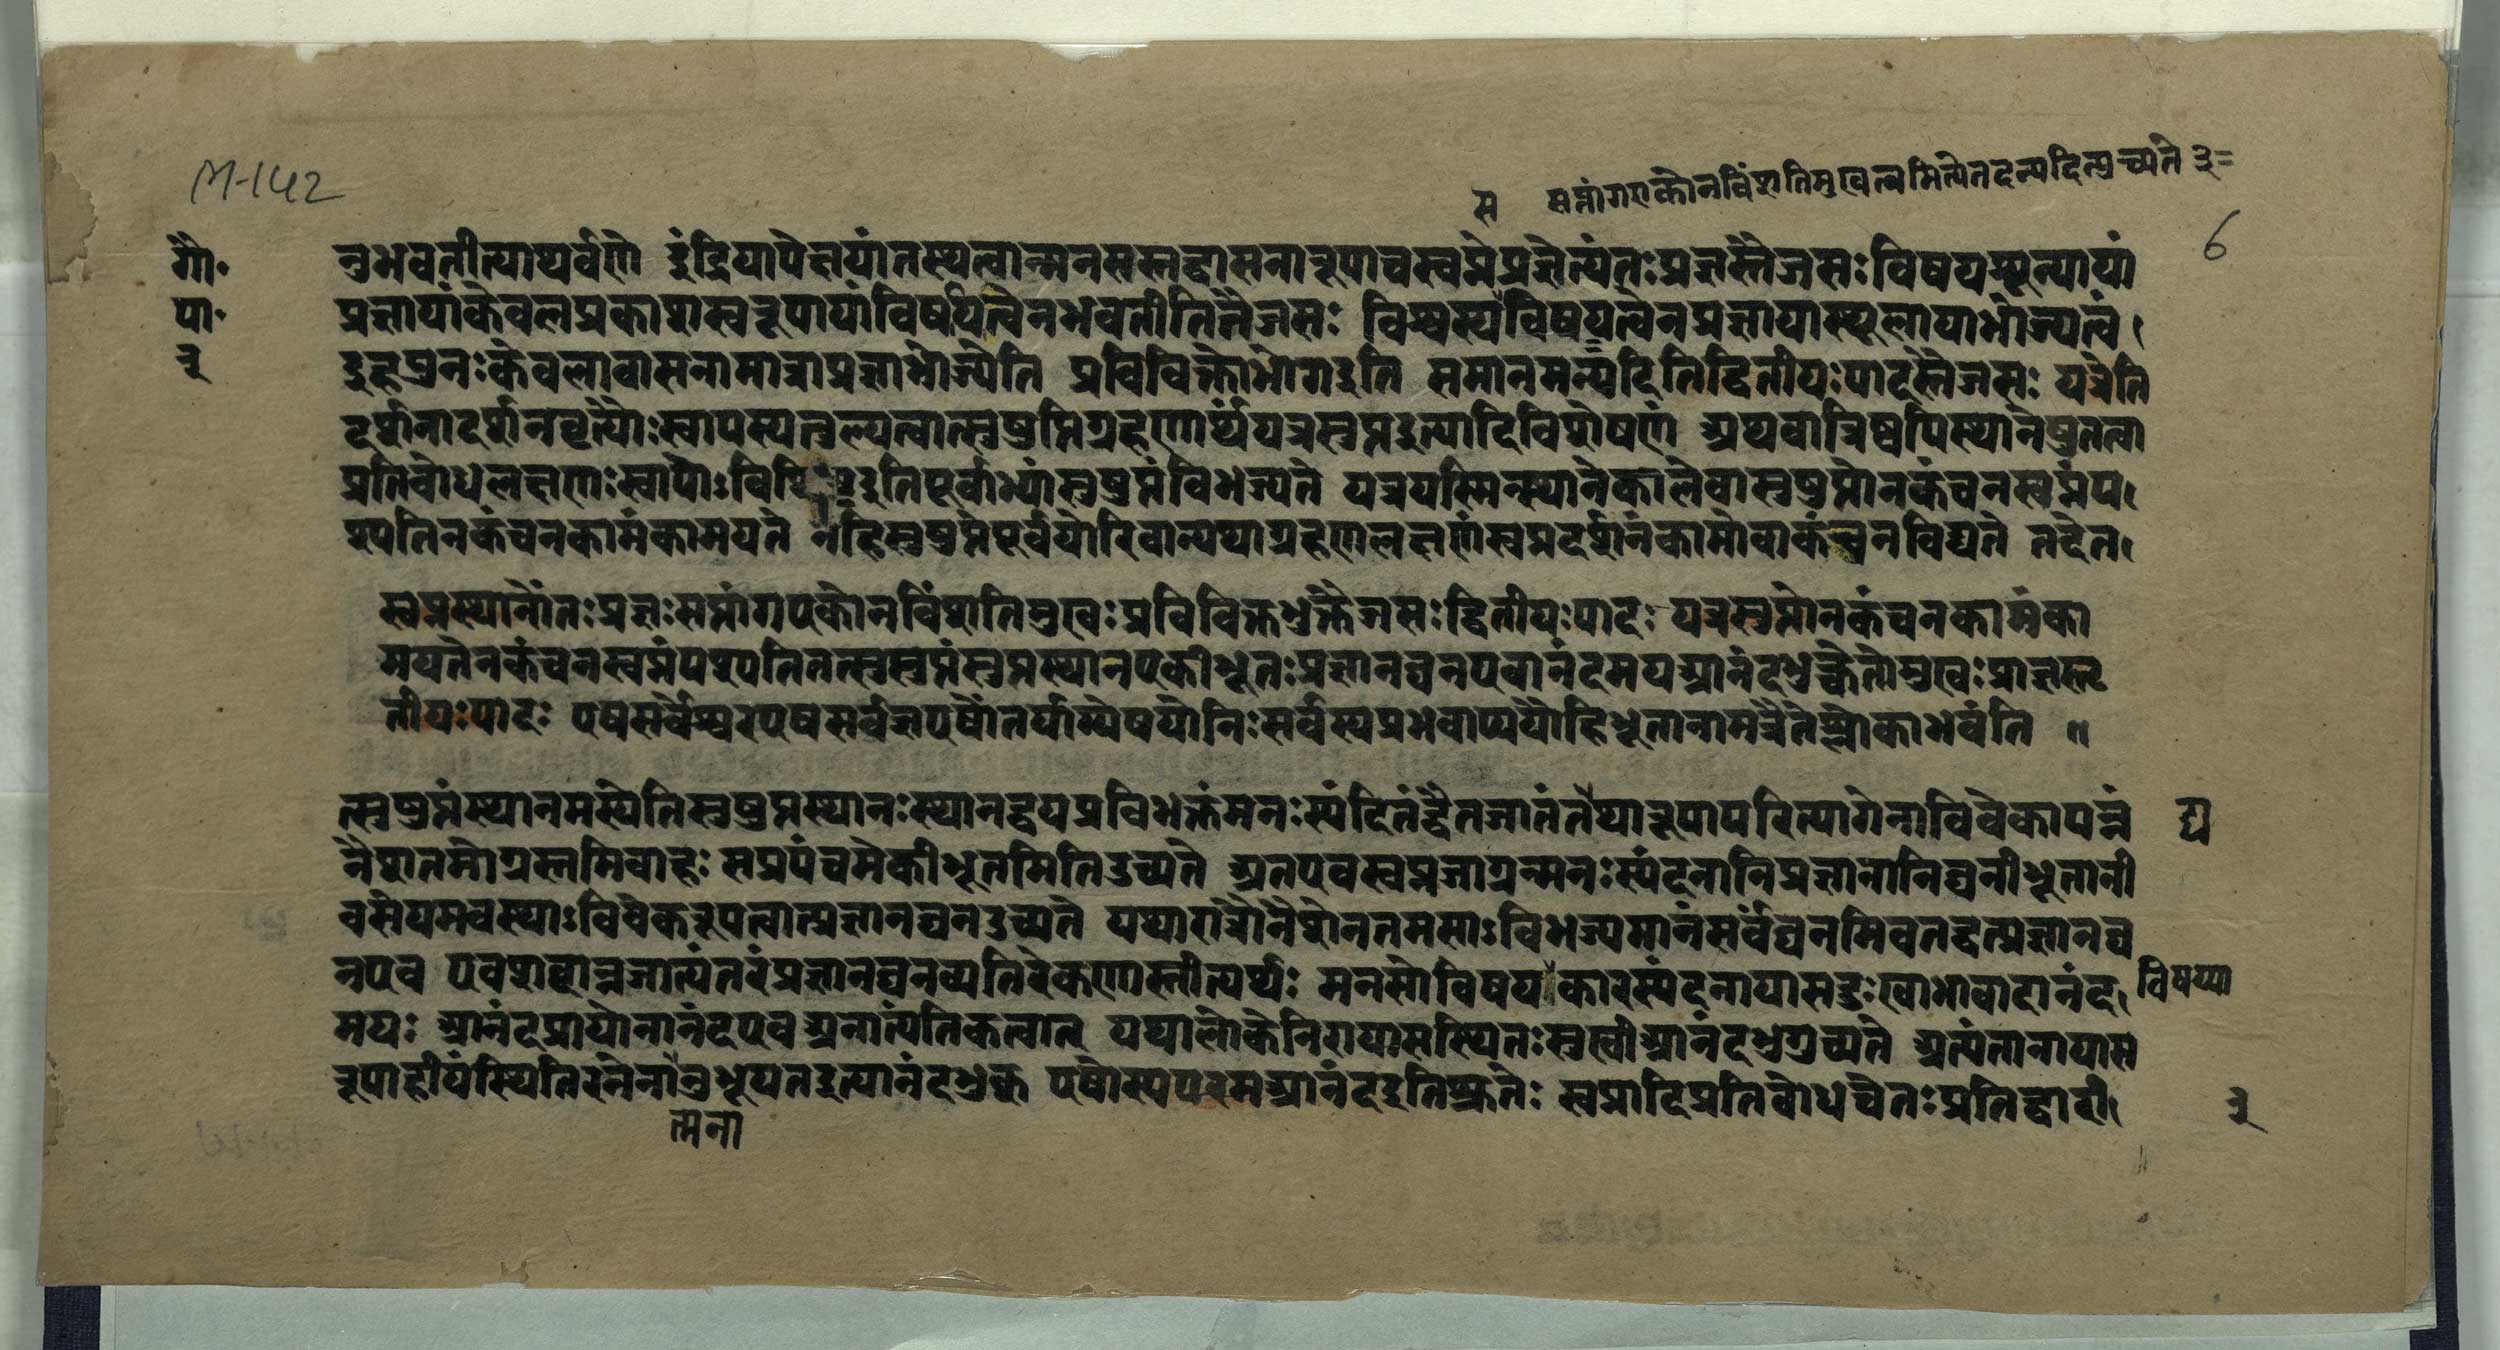 M-142
स सप्तांगएकोनविंशतिमुखत्वमित्येतदन्यदित्युच्यते ३=
6
गौ॰
पा॰
३
नुभवतीत्याथर्वणे इंद्रियापेक्षयांतस्थत्वान्मनसस्तद्वासनारूपाचस्वप्नेप्रज्ञेत्यंतःप्रज्ञस्तैजसः विषयशून्यायां
प्रज्ञायांकेवलप्रकाशस्वरूपायांविषयित्वेनभवतीतितैजसः विश्वस्यविषयत्वेनप्रज्ञायास्थूलायाभोज्यत्वं
इहपुनःकेवलावासनामात्राप्रज्ञाभोज्येति प्रविविक्तोभोगइति समानमन्यदितिद्वितीयःपादस्तैजसः यत्रेति
दर्शनादर्शनवृत्त्योःस्वापस्यतुल्यत्वात्सुषुप्तिग्रहणार्थंयत्रसुप्तइत्यादिविशेषणं अथवात्रिष्वपिस्थानेषुतत्वा
प्रतिबोधलक्षणःस्वापोऽविशि इतिपूर्वाभ्यांसुषुप्तंविभज्यते यत्रयस्मिन्स्थानेकालेवासुषुप्तोनकंचनस्वप्नंप
श्यतिनकंचनकामंकामयते नहिसुषुप्तेपूर्वयोरिवान्यथाग्रहणलक्षणंस्वप्नदर्शनंकामोवाकंचनविद्यते तदेत
स्वप्नस्थानोंतःप्रज्ञःसप्तांगएकोनविंशतिमुखःप्रविविक्तभुक्तैजसःद्वितीयःपादः यत्रसुप्तोनकंचनकामंका
मयतेनकंचनस्वप्नंपश्यतितत्सुसुप्तंसुप्तस्थानएकीभूतःप्रज्ञानघनएवानंदमयआनंदभुक्चेतोमुखःप्राज्ञस्तृ
तीयःपादः एषसर्वेश्वरएषसर्वज्ञएषोंतर्याम्येषयोनिःसर्वस्यप्रभवाप्ययौहिभूतानामत्रैतेश्लोकाभवंति ॥
त्सुषुप्तंस्थानमस्येतिसुषुप्तस्थानःस्थानद्वयप्रविभक्तंमनःस्पंदितंद्वैतजातंतथारूपापरित्यागेनाविवेकापन्नं
नैशतमोग्रस्तमिवाहः सप्रपंचमेकीभूतमितिउच्यते अतएवस्वप्नजाग्रन्मनःस्पंदनानिप्रज्ञानानिघनीभूतानी
वसेयमवस्थाऽविवेकरूपत्वात्प्रज्ञानघनउच्यते यथारात्रौनैशेनतमसाऽविभज्यमानंसर्वंघनमिवतद्वत्प्रज्ञानघ
नएव एवशब्दान्नजात्यंतरंप्रज्ञानघनव्यतिरेकेणास्तीत्यर्थः मनसोविषयाकारस्पंदनायासदुःखाभावादानंद
विषय्या
मयः आनंदप्रायोनानंदएवअनात्यंतिकत्वात् यथालोकेनिरायासस्थितःसुखीआनंदभुगुच्यते अत्यंतानायास
रूपाहीयंस्थितिरनेनानुभूयतइत्यानंदभुक् एषोस्यपरमआनंदइतिश्रुतेः स्वप्नादिप्रतिबोधचेतःप्रतिद्वारी
त्मना
३